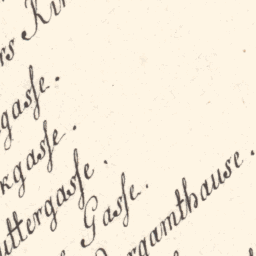 gasse.
kgasse.
uttergasse.
Gasse.
rgamthause.